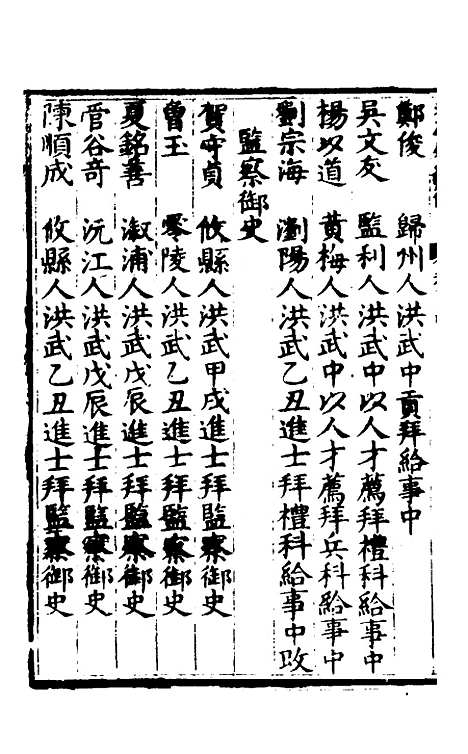 鄭俊　歸州人洪武中貢拜給事中
吳文友　監利人洪武中以人才薦拜禮科給事中
楊以道　黄梅人洪武中以人才薦拜兵科給事中
劉宗海　瀏陽人洪武乙丑進士拜禮科給事中改
監察御史
賀守貞　攸縣人洪武甲戌進士拜監察御史
魯玉　零陵人洪武乙丑進士拜監察御史
夏銘善　溆浦人洪武戊辰進士拜監察御史
菅谷奇　沅江人洪武戊辰進士拜監察御史
陳順成　攸縣人洪武乙丑進士拜監察御史